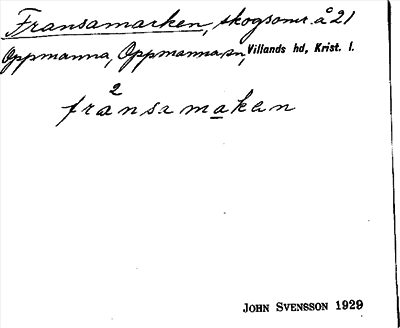 Fransamarken, skogsomr. å 21
Oppmanna, Oppmanna sn, Villands hd, Krist. l.
2
fransamakan
JOHN SVENSSON 1929